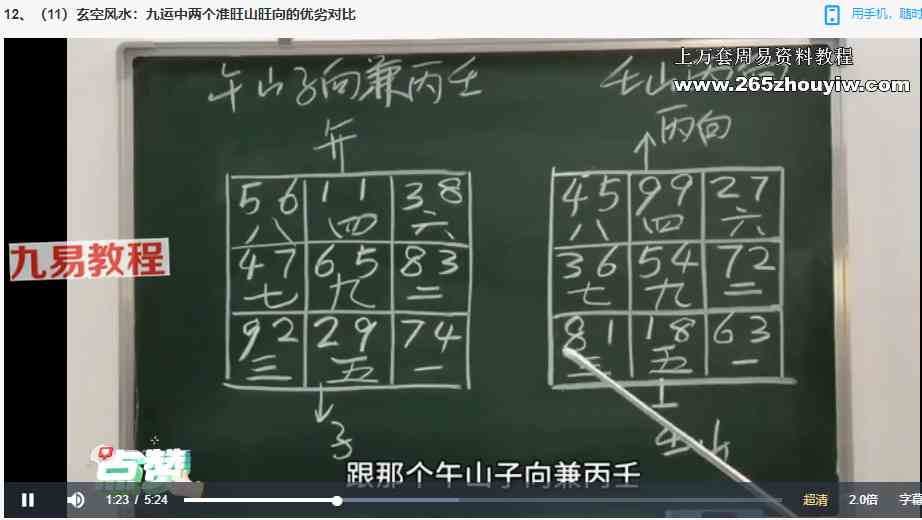 12、（11）玄空风水：九运中两个准旺山旺向的优劣对比
用手机，随时
上万套周易资料教程
www.265zhouyiw.com
午山子向兼丙壬
壬山
午
丙向
5 6 1 1 3 8
八 四 六
4 7 6 5 8 3
七 九 二
9 2 2 9 7 4
三 五 一
子
4 5 9 9 2 7
八 四 六
3 6 5 4 7 2
七 九 二
8 1 1 8 6 3
三 五 一
壬山
九易教程
点赞
跟那个午山子向兼丙壬
1:23 / 5:24
超清
2.0倍
字幕